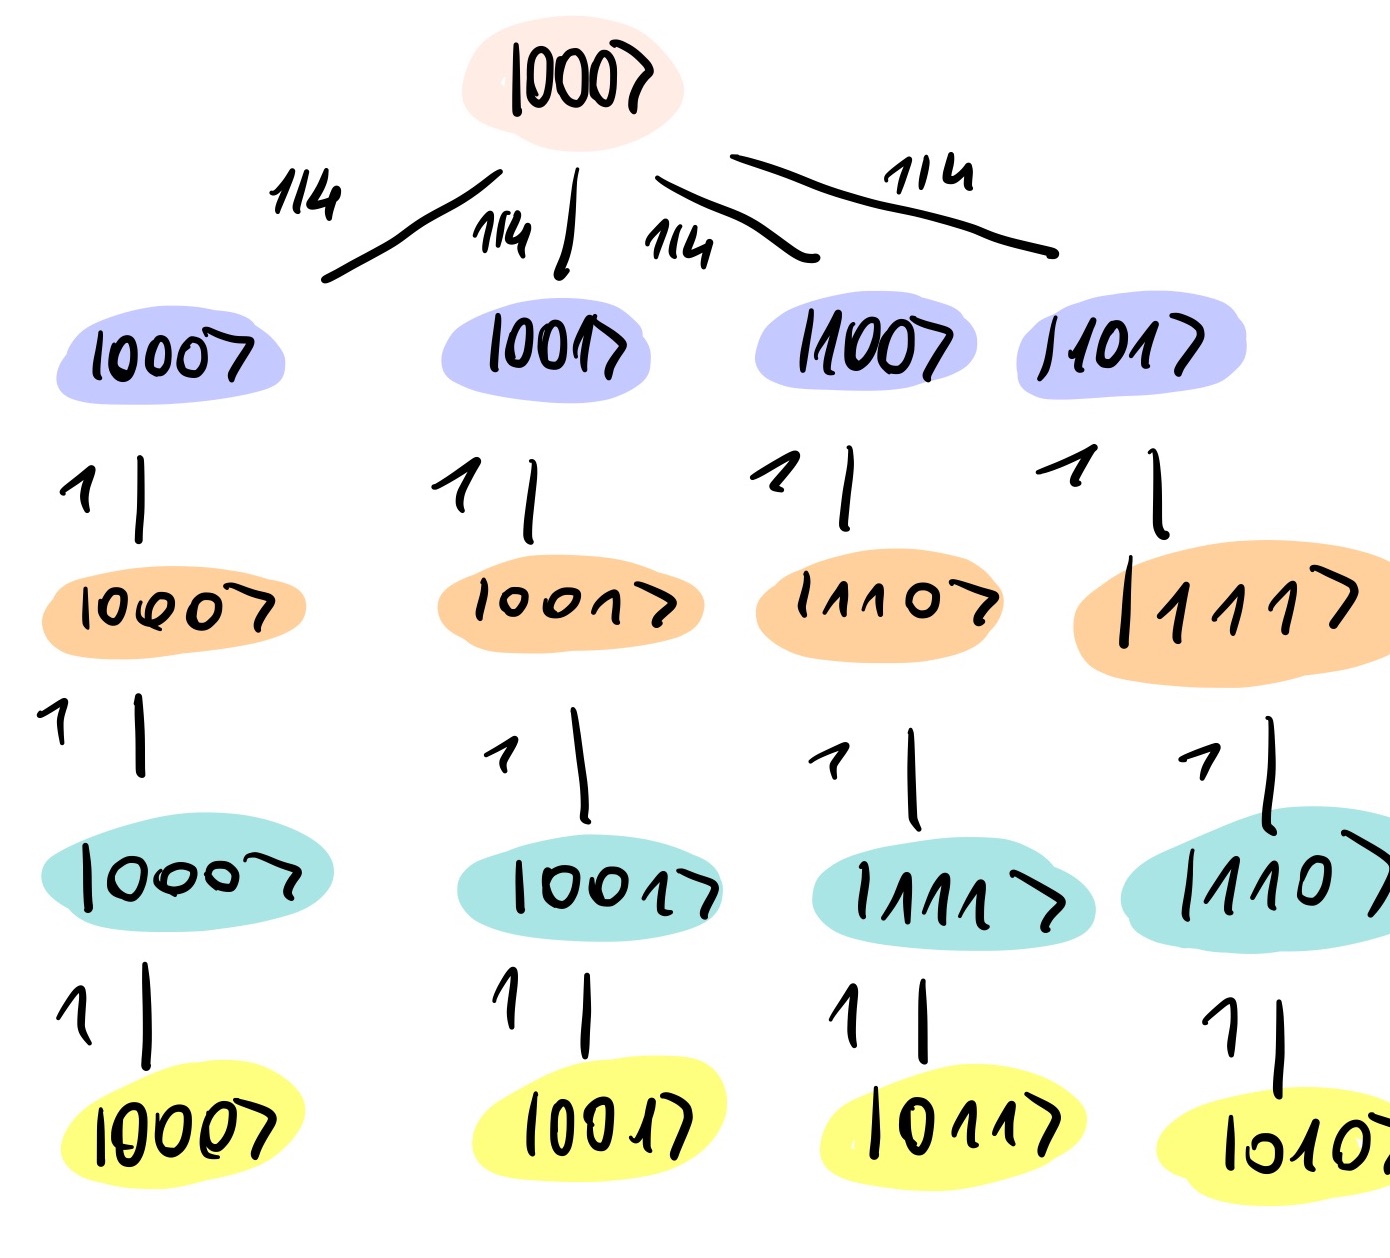 |000>
1/4 1/4 1/4 1/4
|000> |001> |100> |101>
1 1 1 1
|000> |001> |110> |111>
1 1 1 1
|000> |001> |111> |110>
1 1 1 1
|000> |001> |011> |010>